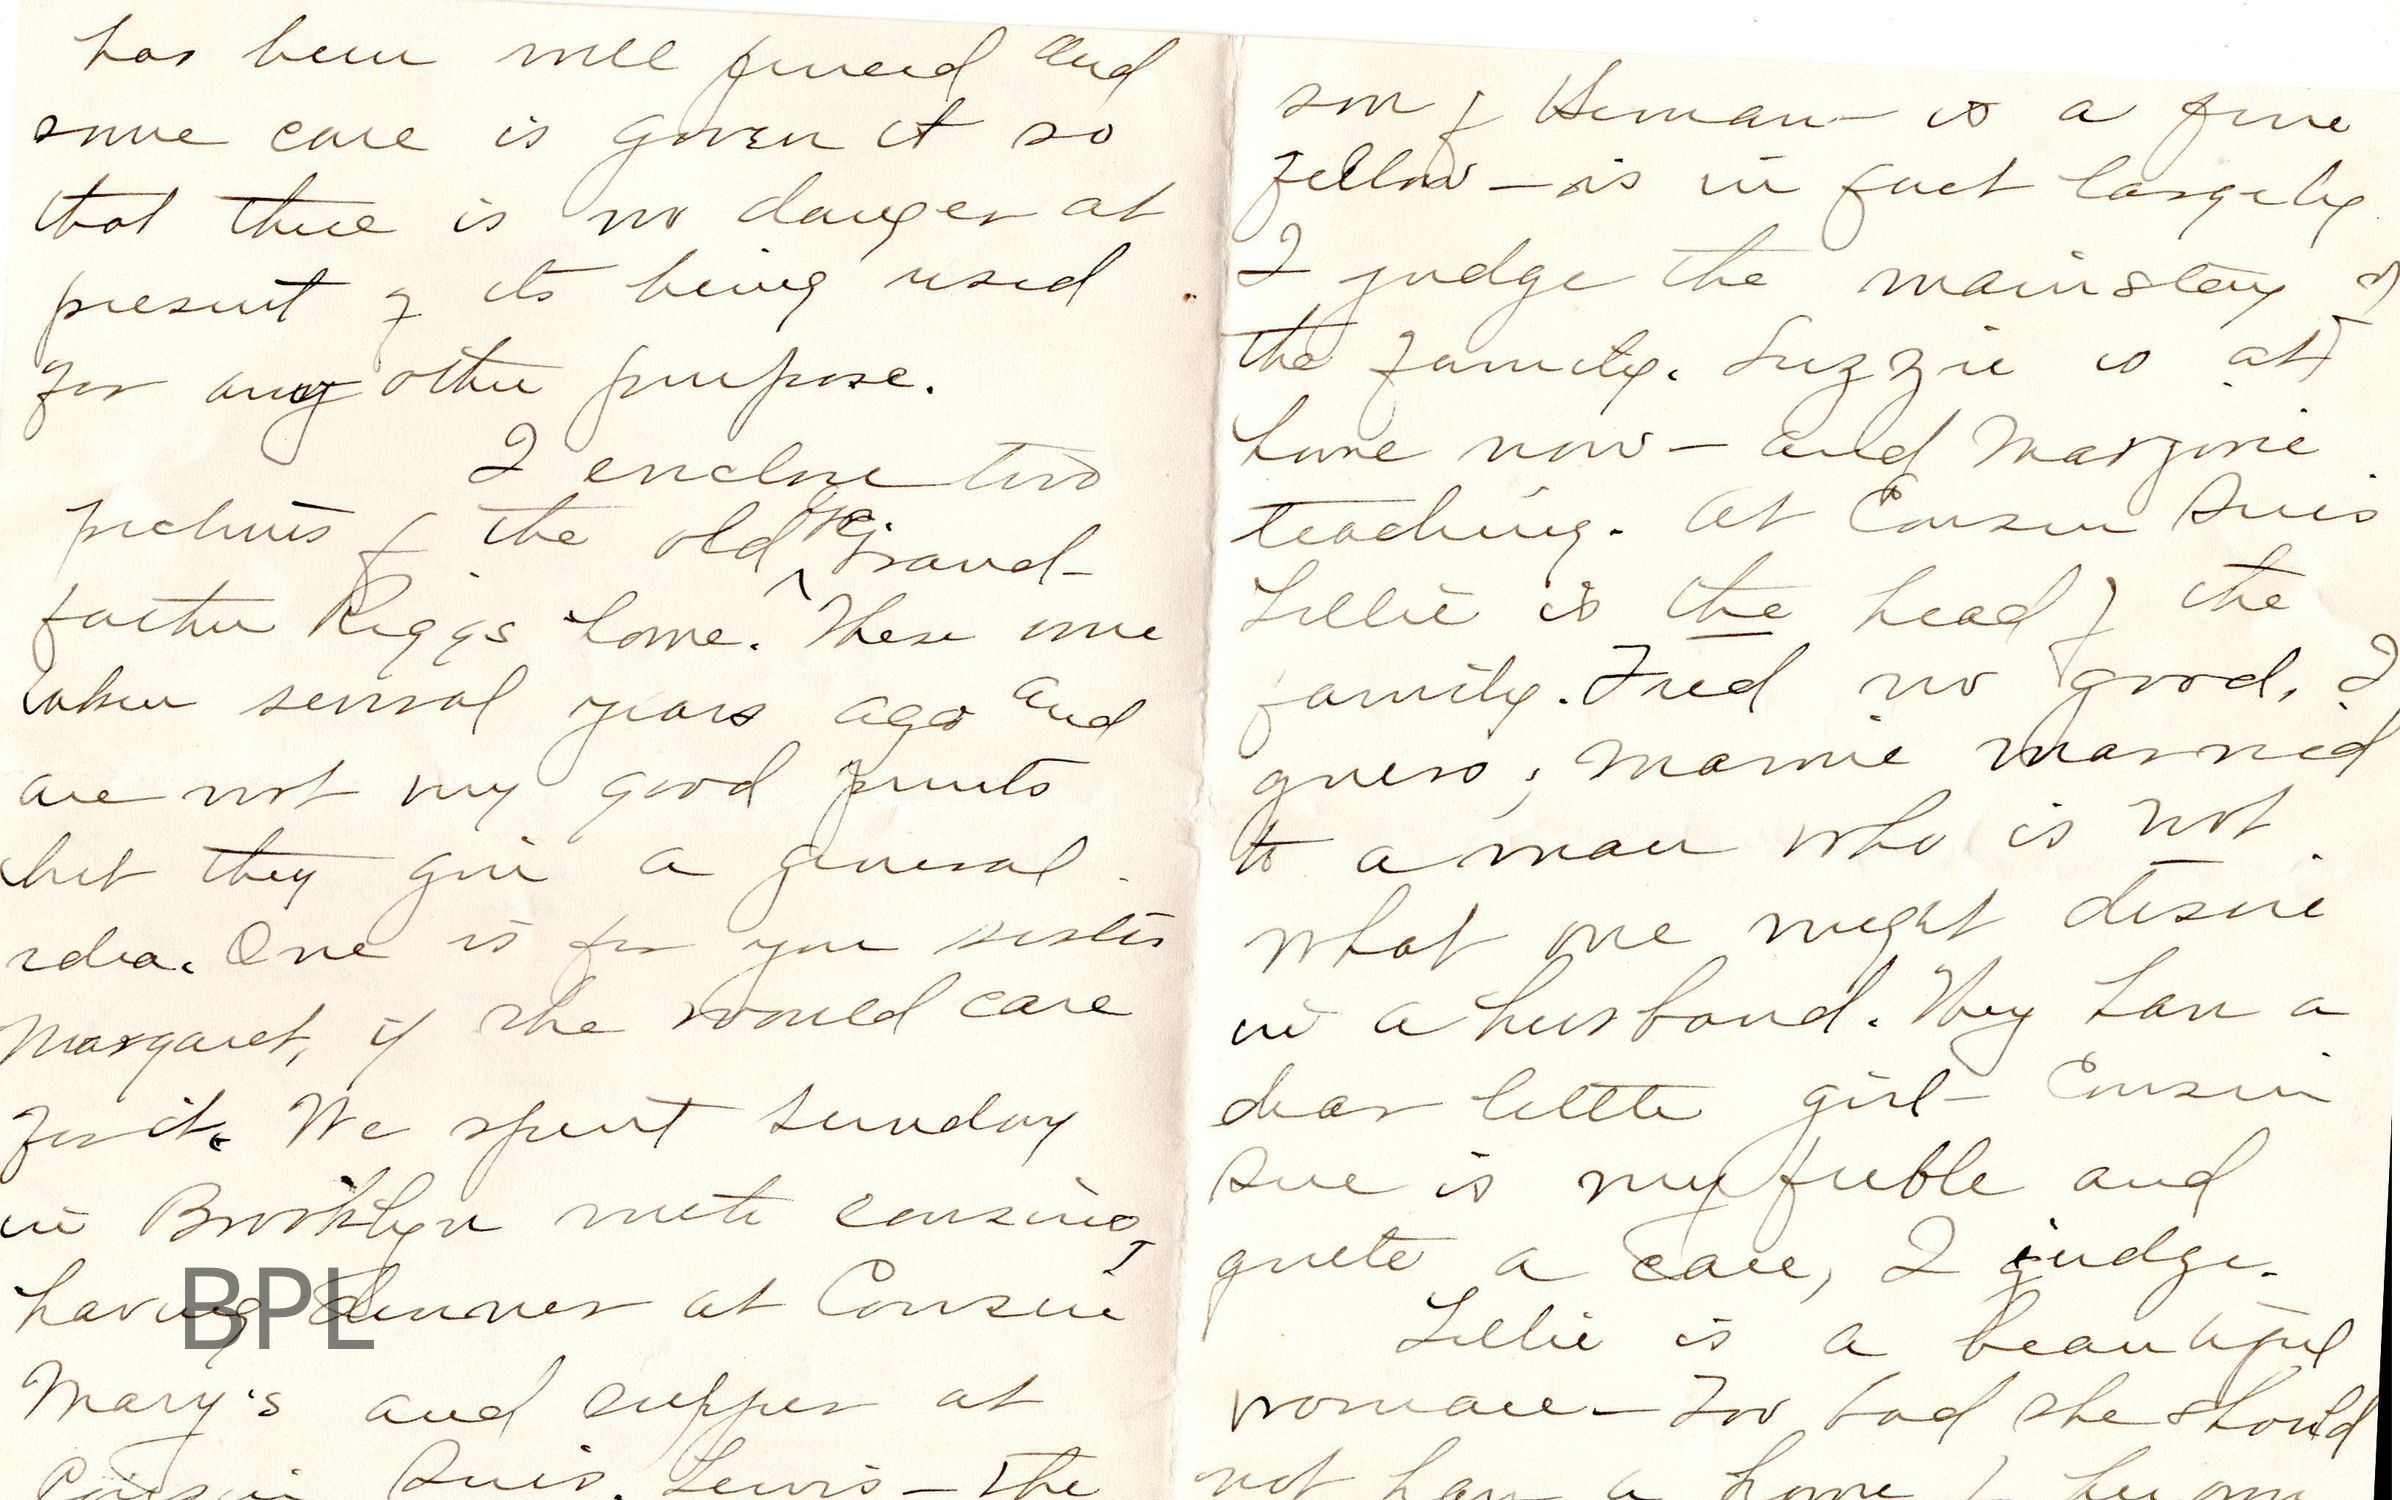 has been well fenced and
some care is given it so
that there is no danger at
present of its being used
for any other purpose.
I enclose two
pictures of the old Grand-
father Riggs home. These were
taken several years ago and
are not very good prints
but they give a general
idea. One is for you sister
Margaret, if she would care
for it. We spent Sunday
in Brooklyn with cousins,
having dinner at Cousin
Mary's and supper at
Cousin Sue's. Lewis - the
son of Heman - is a fine
fellow - is in fact largely
I judge the mainstay of
the family. Suzzie is at
home now - and Marjorie
teaching. At Cousin Sue's
Lillie is the head of the
family. Fred no good, I
guess; Mamie married
to a man who is not
what one might desire
in a husband. They have a
dear little girl - Cousin
Sue is very feeble and
quite a care, I judge.
Lillie is a beautiful
woman - Too bad she should
not have a home of her own
BPL